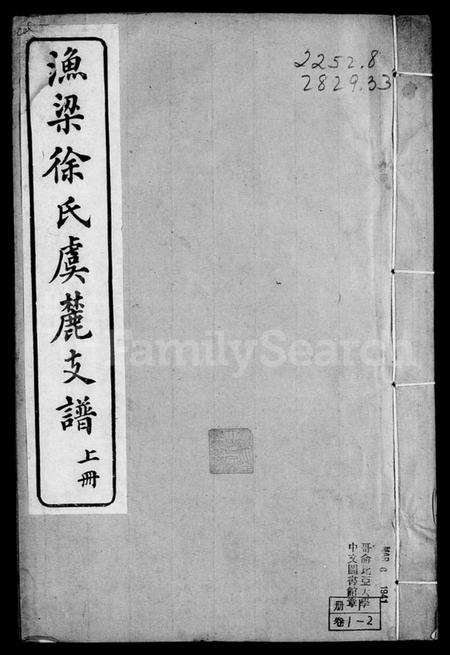 漁梁徐氏虞麓支譜 上冊
2252.8
2829.33
FamilySearch
哥倫比亞大學
中文圖書館章
MAR 6 1941
册 1
卷 1-2